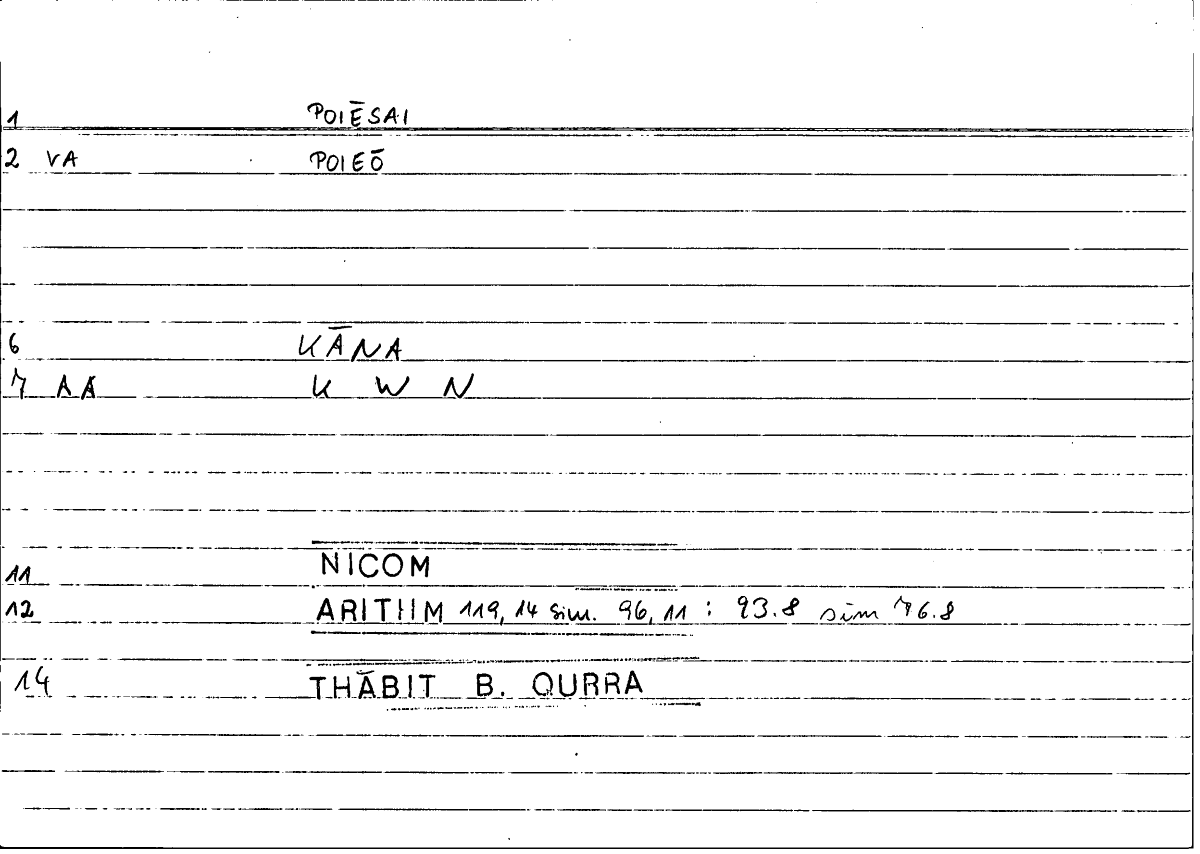 1 POIĒSAI
2 VA POIEŌ
6 KĀNA
7 AA K W N
11 NICOM
12 ARITHM 119,14 sim. 96,11 : 93.8 sim 76.8
14 THĀBIT B. QURRA